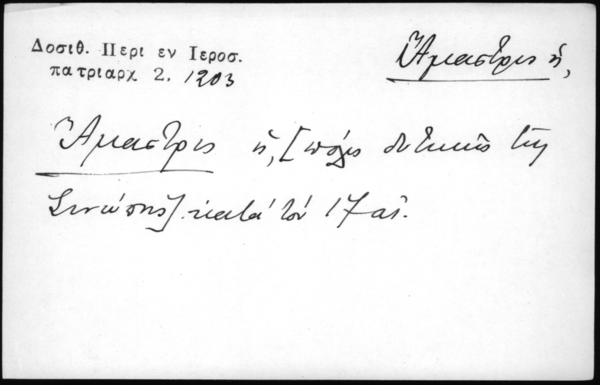 Δοσιθ. Περι εν Ιεροσ.
πατριαρχ 2, 1203
Ἄμαστρις ἡ,
Ἄμαστρις ἡ, [πόλις δυτικῶς τῆς
Σινώπης]. κατά τόν 17 αἰ.